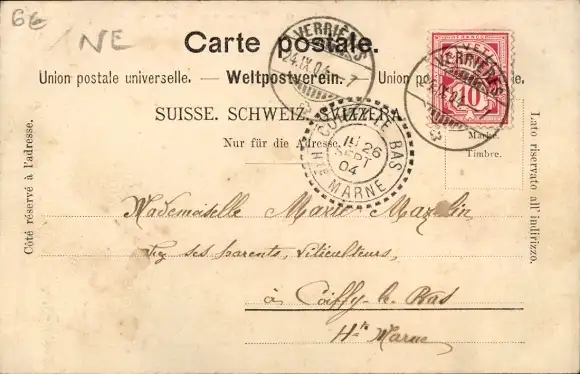 6€
NE
Carte postale.
Union postale universelle. — Weltpostverein. — Union po
SUISSE. SCHWEIZ. SVIZZERA.
Nur für die Adresse.
Côté réservé à l'adresse.
Lato riservato all' indirizzo.
Marke.
Timbre.
VERRIÈRES
24.IX.04. - 7
VERRIÈRES
24.IX.04. - 7
HELVETIA
10
COIFFY LE BAS
26
SEPT
04
HTE MARNE
Mademoiselle Marie
chez ses parents, viticulteurs,
à Coiffy-le-Bas
Hte Marne